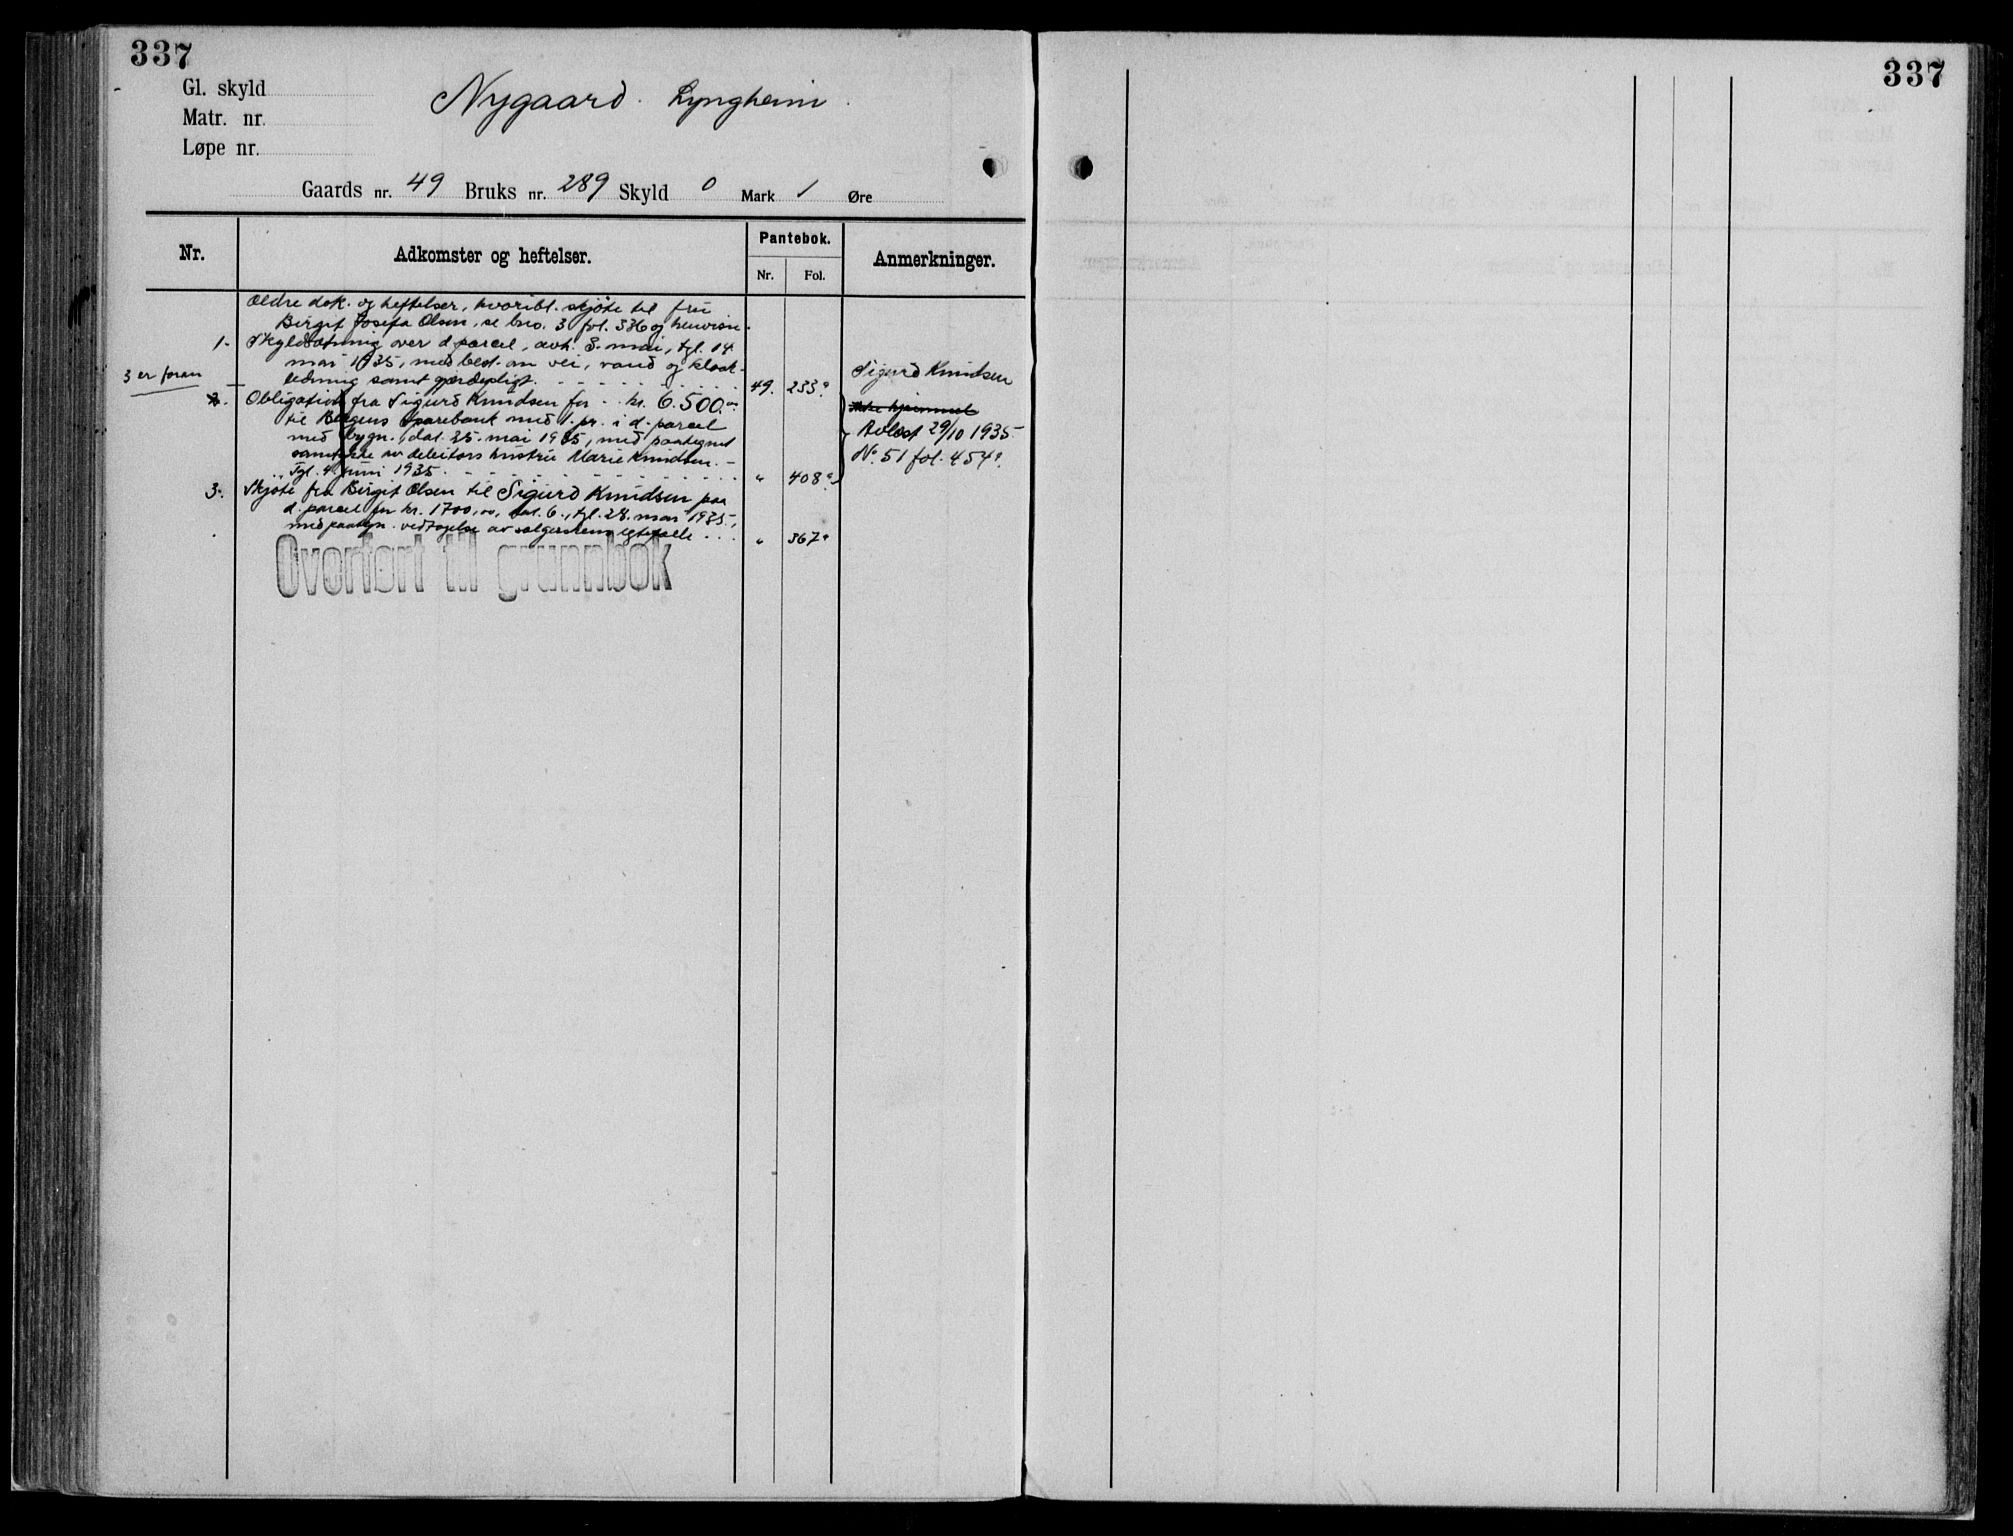 337
337
Gl. skyld
Matr. nr.
Løpe nr.
Nygaard. Lyngheim.
Gaards nr. 49 Bruks nr. 289 Skyld 0 Mark 1 Øre
Nr.
Adkomster og heftelser.
Pantebok.
Nr.
Fol.
Anmerkninger.
Ældre dok. og heftelser, hvoribl. skjøte til fru
Birgit Josefa Olsen, se bno. 3 fol. 336 og henvisn.
1. Skyldsætning over d. parcel, avh. 3. mai, tgl. 14
mai 1935, med best. om vei, vand og kloak-
ledning samt gjerdepligt. 49. 233a
3 er foran
2. Obligation fra Sigurd Knudsen for kr. 6.500.00
til Bergens Sparebank med 1. pr. i d. parcel
med bygn., dat. 25. mai 1935, med paategnet
samtykke av debitors hustru Marie Knudsen.
Tgl. 4. juni 1935. " 408a
Sigurd Knudsen
Ikke hjemmel
Avlæst 29/10 1935
No. 51 fol. 454a.
3. Skjøte fra Birgit Olsen til Sigurd Knudsen paa
d. parcel for kr. 1700,00, dat. 6., tgl. 28. mai 1935,
med paategn. vedtagelse av selgerskens egtefælle. " 367a
Overført til grunnbok